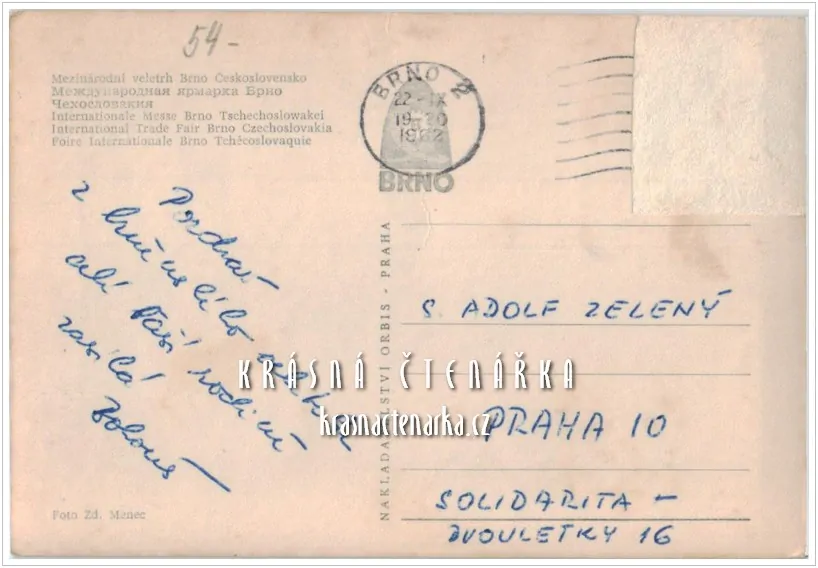 54-
Mezinárodní veletrh Brno Československo
Международная ярмарка Брно
Чехословакия
Internationale Messe Brno Tschechoslowakei
International Trade Fair Brno Czechoslovakia
Foire Internationale Brno Tchécoslovaquie
BRNO 2
22-IX
19-20
1962
BRNO
Pozdrav
z brněnského veletrhu
celé Vaší rodině
zasílá
NAKLADATELSTVÍ ORBIS - PRAHA
S. ADOLF ZELENÝ
KRÁSNÁ ČTENÁŘKA
krasnactenarka.cz
PRAHA 10
SOLIDARITA -
DVOULETKY 16
Foto Zd. Menec